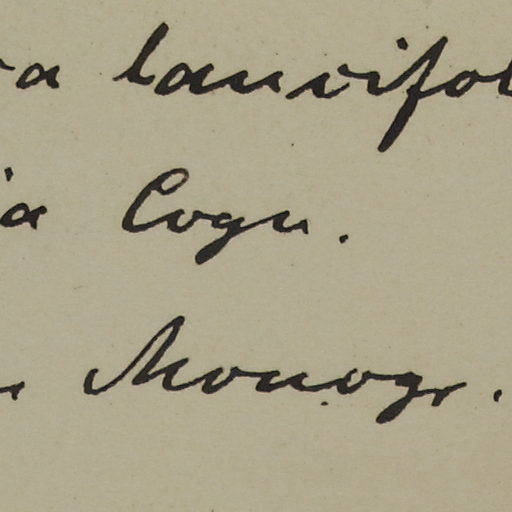 a laurifol
ia Cogn.
Monogr.